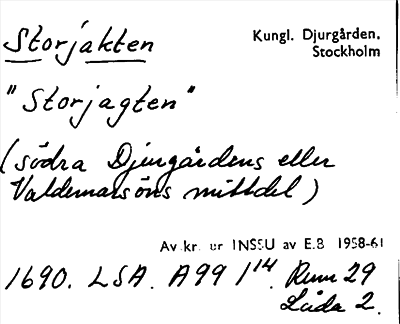 Storjakten
Kungl. Djurgården,
Stockholm
"Storjagten"
(södra Djurgårdens eller
Valdemarsöns mittdel)
Av kr. ur INSSU av E.B 1958-61
1690. LSA. A99 1¹⁴. Rum 29
Låda 2.